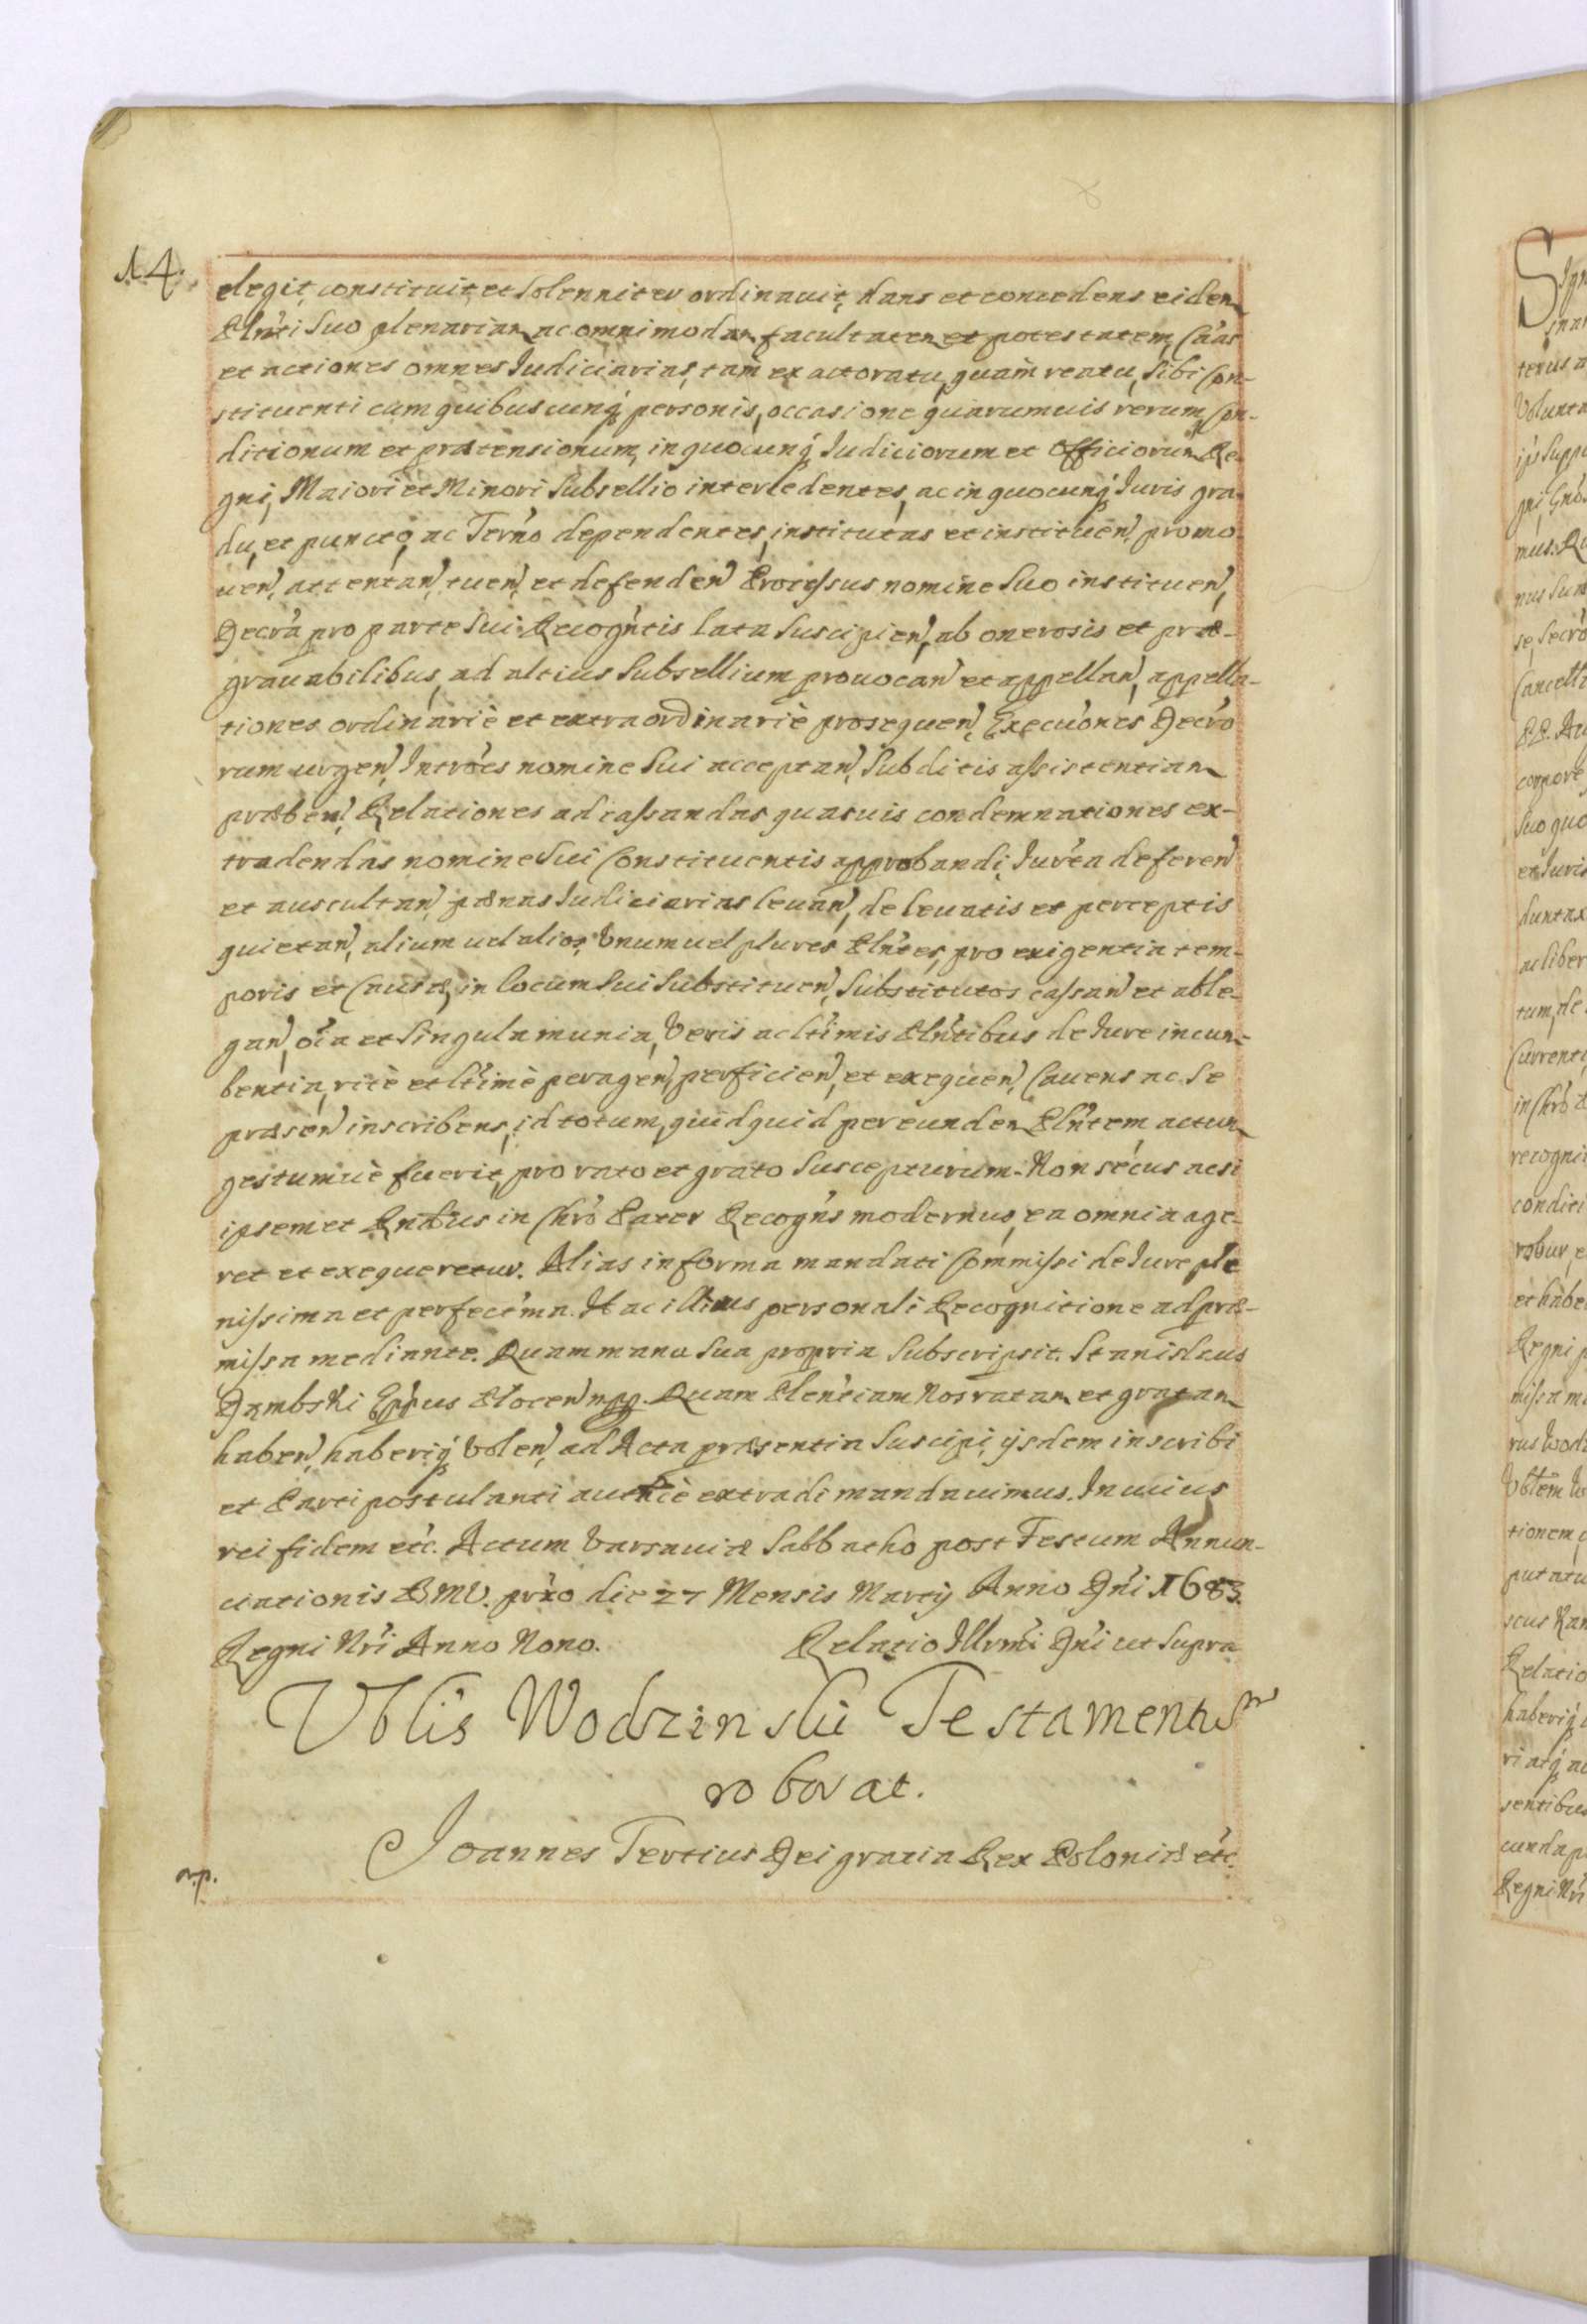 14.
elegit, constituit, et Solenniter ordinauit, dans et concedens eidem
Plnti Suo plenariam ac omnimodam facultatem et potestatem, Cãas
et actiones omnes Iudiciarias, tam ex actoratu, quam reatu, Sibi Con-
stituenti cum quibuscunq personis, occasione quarumuis rerum, Con-
ditionum et prætensionum, in quocunq Iudiciorum et Officiorum Re-
gni, Maiori et Minori Subsellio intercedentes, ac in quocunq Iuris gra-
du, et puncto, ac Terno dependentes, institutas et instituen, promo-
uen, attentan, tuen, et defenden Processus nomine Suo instituen,
Decra pro parte Sui Recogntis lata Suscipien, ab onerosis et præ-
grauabilibus, ad altius Subsellium prouocan et appellan, appella-
tiones ordinariè et extraordinariè prosequen, Execuones Decro
rum urgen, Introes nomine Sui acceptan, Subditis assistentiam
præben, Relationes ad cassandas quasuis condemnationes ex-
tradendas nomine Sui Constituentis approbandi, Iurea deferen
et auscultan, pænas Iudiciarias leuan, de leuatis et perceptis
quietan, alium uel alios, Vnum uel plures Plntes, pro exigentia tem-
poris et Causæ, in locum Sui Substituen, Substitutos cassan et able-
gan, oia et Singula munia, Veris ac ltimis Plntibus de Iure incum-
bentia, ritè et ltimè peragen, perficien, et exequen, Cauens ac Se
præsen inscribens, id totum, quidquid per eundem Plntem, actum
gestumuè fuerit, pro rato et grato Suscepturum. Non secus ac si
ipsemet Rndus in Chro Pater Recogns modernus, ea omnia age-
ret et exequeretur. Alias in forma mandati Commissi de Iure ple
nissima et perfectma. Hac illius personali Recognitione ad præ-
missa mediante. Quam manu Sua propria Subscripsit. Stanislaus
Dąmbski Eppus Plocen mpp. Quam Plentiam Nos ratam et gratam
haben, haberiq Volen, ad Acta præsentia Suscipi, ijsdem inscribi
et Parti postulanti authcè extradi mandauimus. In cuius
rei fidem etc. Actum Varsauiæ Sabbatho post Festum Annun-
ciationis BMV. prxo die 27 Mensis Martij Anno Dni 1683.
Regni Nri Anno Nono. Relatio Illrmi Dni ut Supra
Vblis Wodzinski Testamentum
roborat.
Joannes Tertius Dei gratia Rex Poloniæ etc.